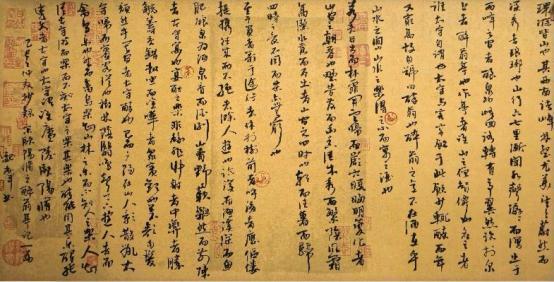 環滁皆山也其西南諸峰林壑尤美望之蔚然
深秀者瑯琊也山行六七里漸聞水聲潺潺而瀉出于
兩峰之間者釀泉也峰回路轉有亭翼然臨于泉
上者醉翁亭也作亭者誰山之僧智僊也名之者
誰太守自謂也太守與客來飲于此飲少輒醉而年
又最高故自號曰醉翁也醉翁之意不在酒在乎
山水之間也山水之樂得之心而寓之酒也
若夫日出而林霏開雲歸而巖穴暝晦明變化者
山間之朝暮也野芳發而幽香佳木秀而繁陰風霜
高潔水落而石出者山間之四時也朝而往暮而歸
四時之景不同而樂亦無窮也
至於負者歌于塗行者休于樹前者呼後者應傴僂
提攜往來而不絕者滁人遊也臨溪而漁溪深而魚
肥釀泉為酒泉香而酒洌山肴野蔌雜然而前陳
者太守宴也宴酣之樂非絲非竹射者中弈者勝
觥籌交錯起坐而喧嘩者眾賓歡也蒼顏白髮
頹然乎其間者太守醉也已而夕陽在山人影散亂太
守歸而賓客從也樹林陰翳鳴聲上下遊人去而
禽鳥樂也然而禽鳥知山林之樂而不知人之樂人知
從太守遊而樂而不知太守之樂其樂也醉能同其樂醒能
述以文者太守也太守謂誰廬陵歐陽脩也
宋歐陽脩醉翁亭記一篇